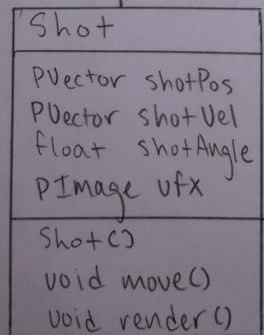 Shot
PVector shotPos
PVector shotVel
float shotAngle
PImage vfx
Shot()
void move()
void render()